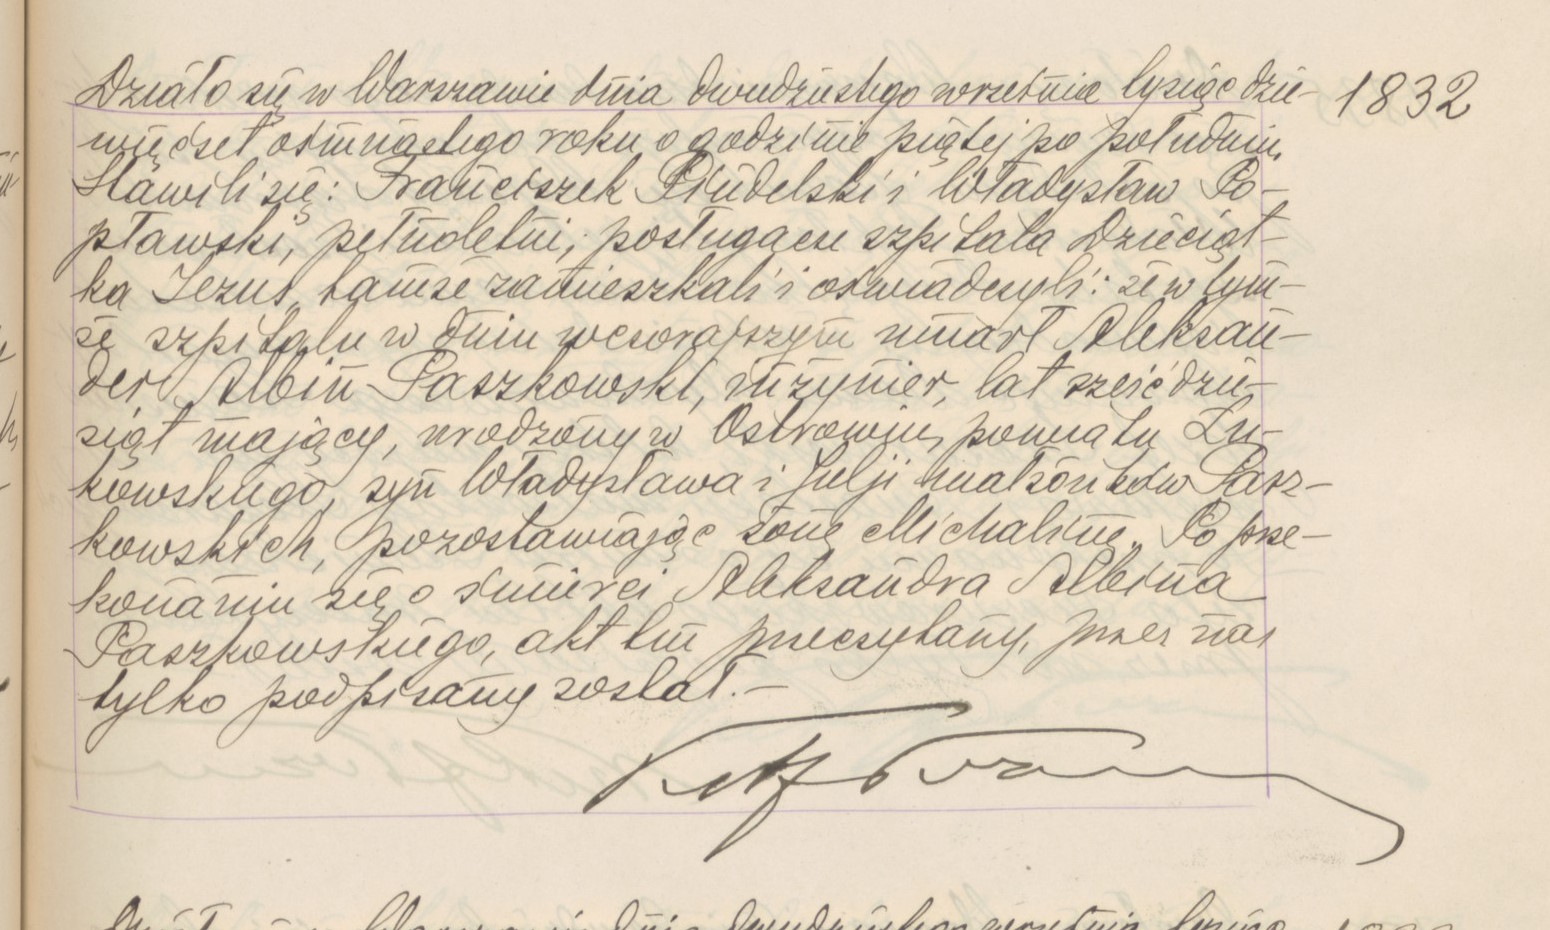 Działo się w Warszawie dnia dwudziestego września tysiąc dzie- 1832
więćset ośmnastego roku o godzinie piątej po południu.
Stawili się: Franciszek Pludelski i Władysław Po-
pławski, pełnoletni, posługacze szpitala Dzieciąt-
ka Jezus, tamże zamieszkali i oświadczyli: że w tym-
że szpitalu w dniu wczorajszym umarł Aleksan-
der Albin Paszkowski, inżynier, lat sześćdzie-
siąt mający, urodzony w Ostrowiu, powiatu Łu-
kowskiego, syn Władysława i Julji małżonków Pasz-
kowskich, pozostawiając żonę Michalinę. Po prze-
konaniu się o śmierci Aleksandra Albina
Paszkowskiego, akt ten przeczytany, przez nas
tylko podpisany został.-